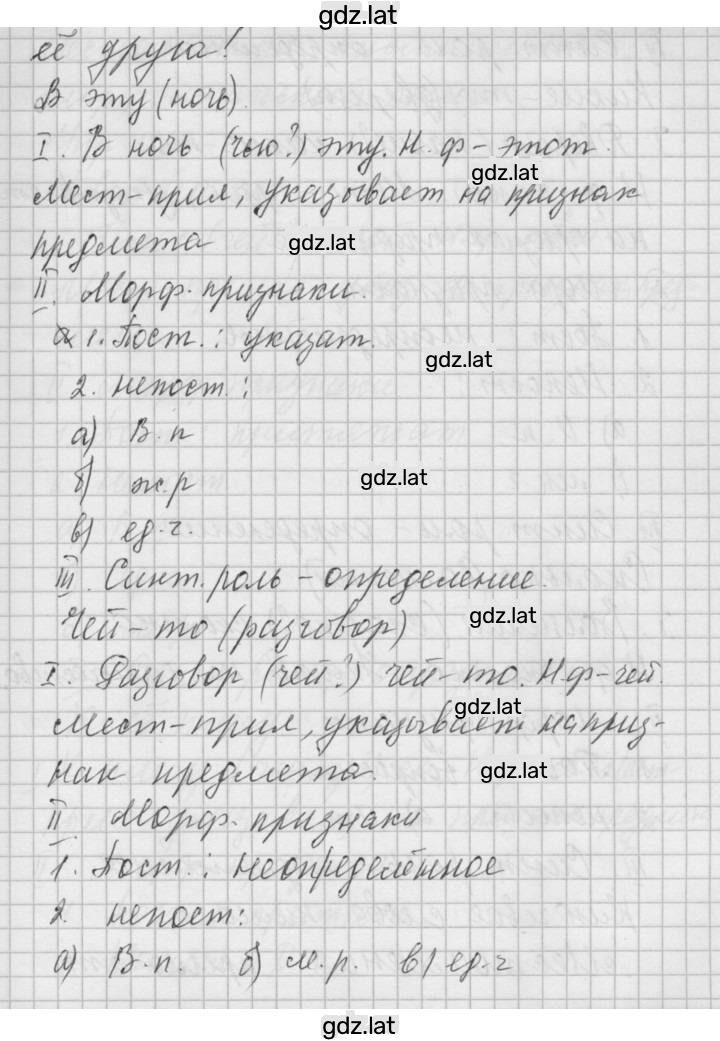 gdz.lat
её друга!
В эту (ночь).
I. В ночь (чью?) эту. Н. ф - этот.
gdz.lat
Мест-прил, указывает на признак
предмета
gdz.lat
II. Морф. признаки.
а 1. Пост.: указат.
gdz.lat
2. непост.:
а) В.п
б) ж.р
gdz.lat
в) ед.ч.
III. Синт. роль - определение.
gdz.lat
Чей-то (разговор)
I. Разговор (чей?) чей-то. Н.ф-чей.
gdz.lat
Мест-прил, указывает на приз-
нак предмета.
gdz.lat
II Морф. признаки
1. Пост.: неопределённое
2. непост:
а) В.п. б) м.р. в) ед.ч
gdz.lat